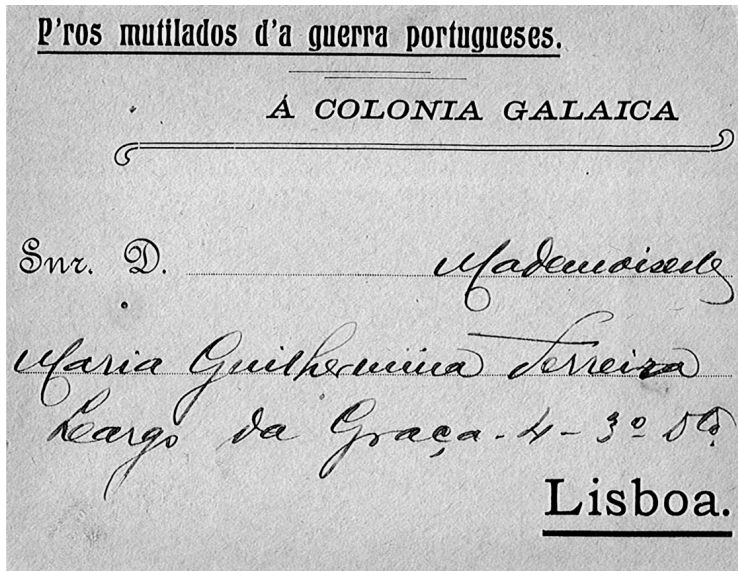 P'ros mutilados d'a guerra portugueses.
Á COLONIA GALAICA
Snr. D. Mademoiselle
Maria Guilhermina Ferreira
Largo da Graça - 4 - 3º Dtº
Lisboa.